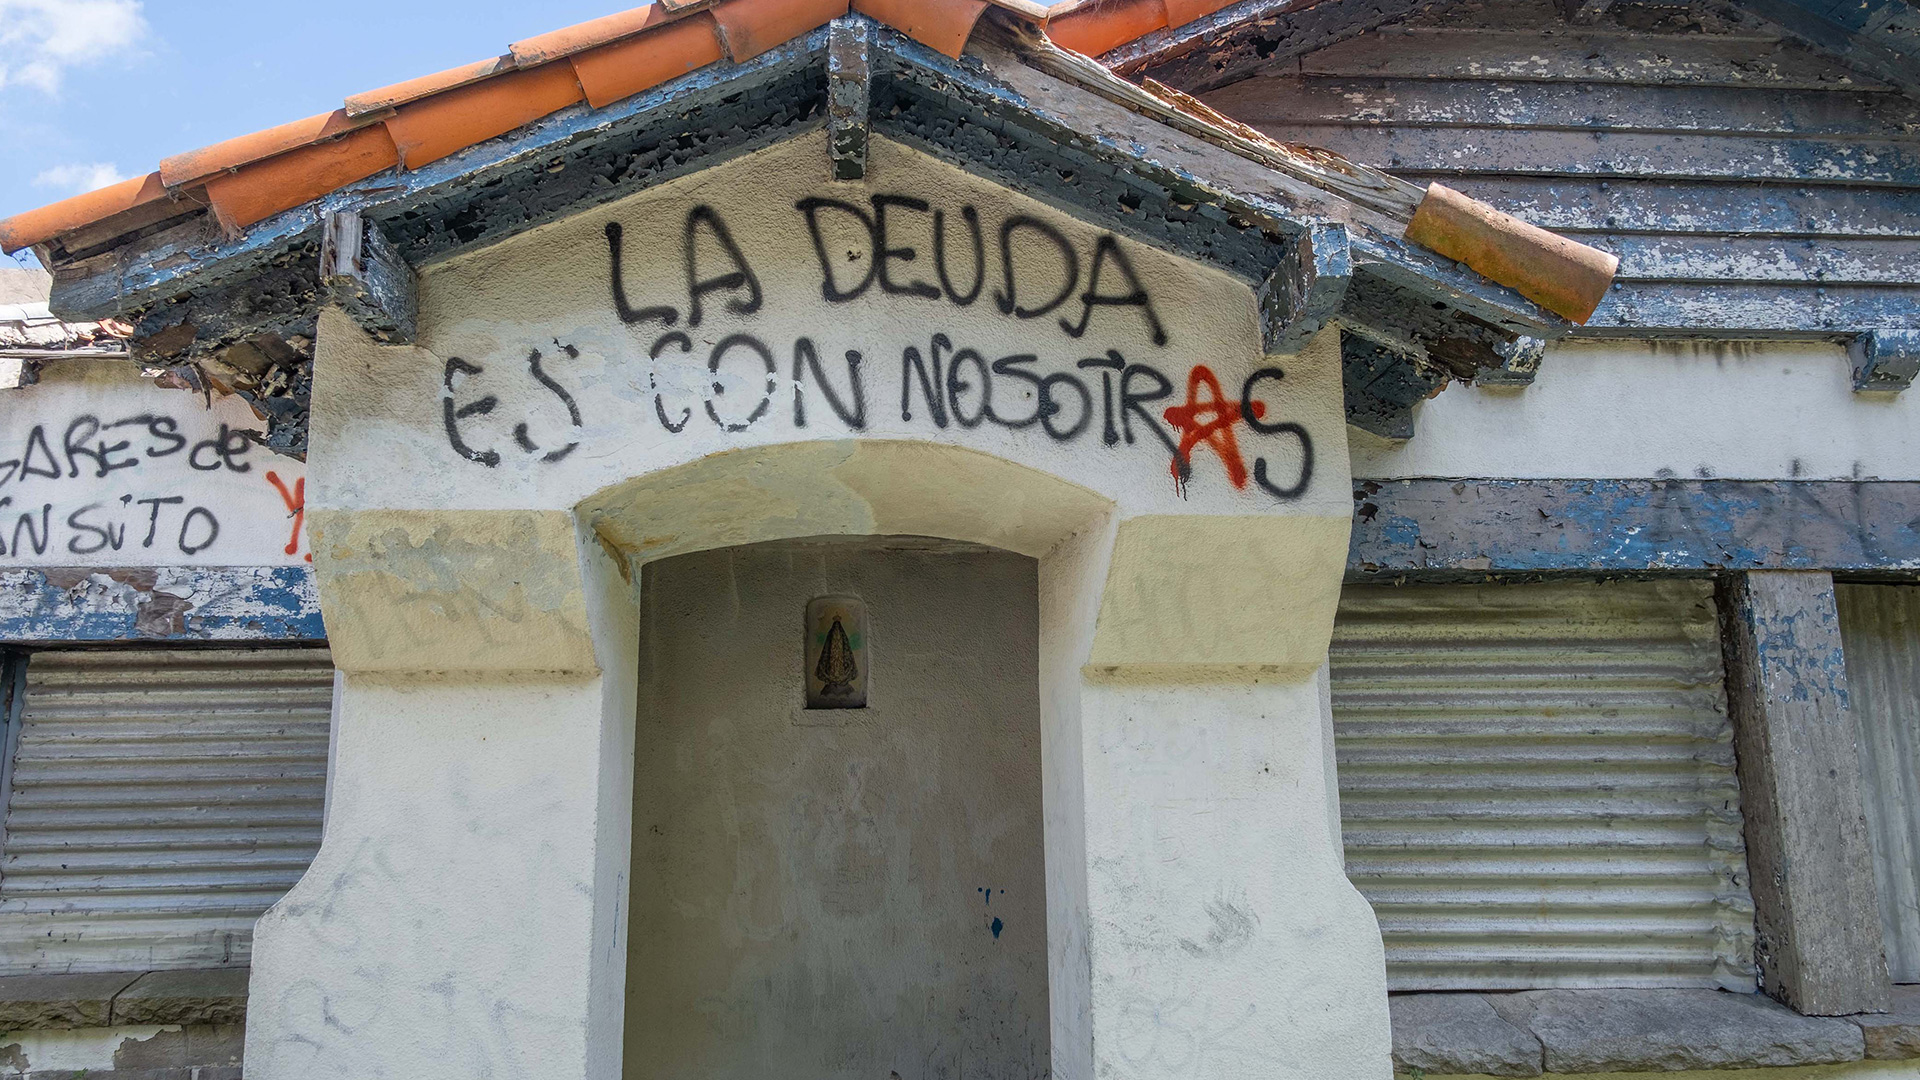 LA DEUDA
ES CON NOSOTRAS
ARES de
NSiTO